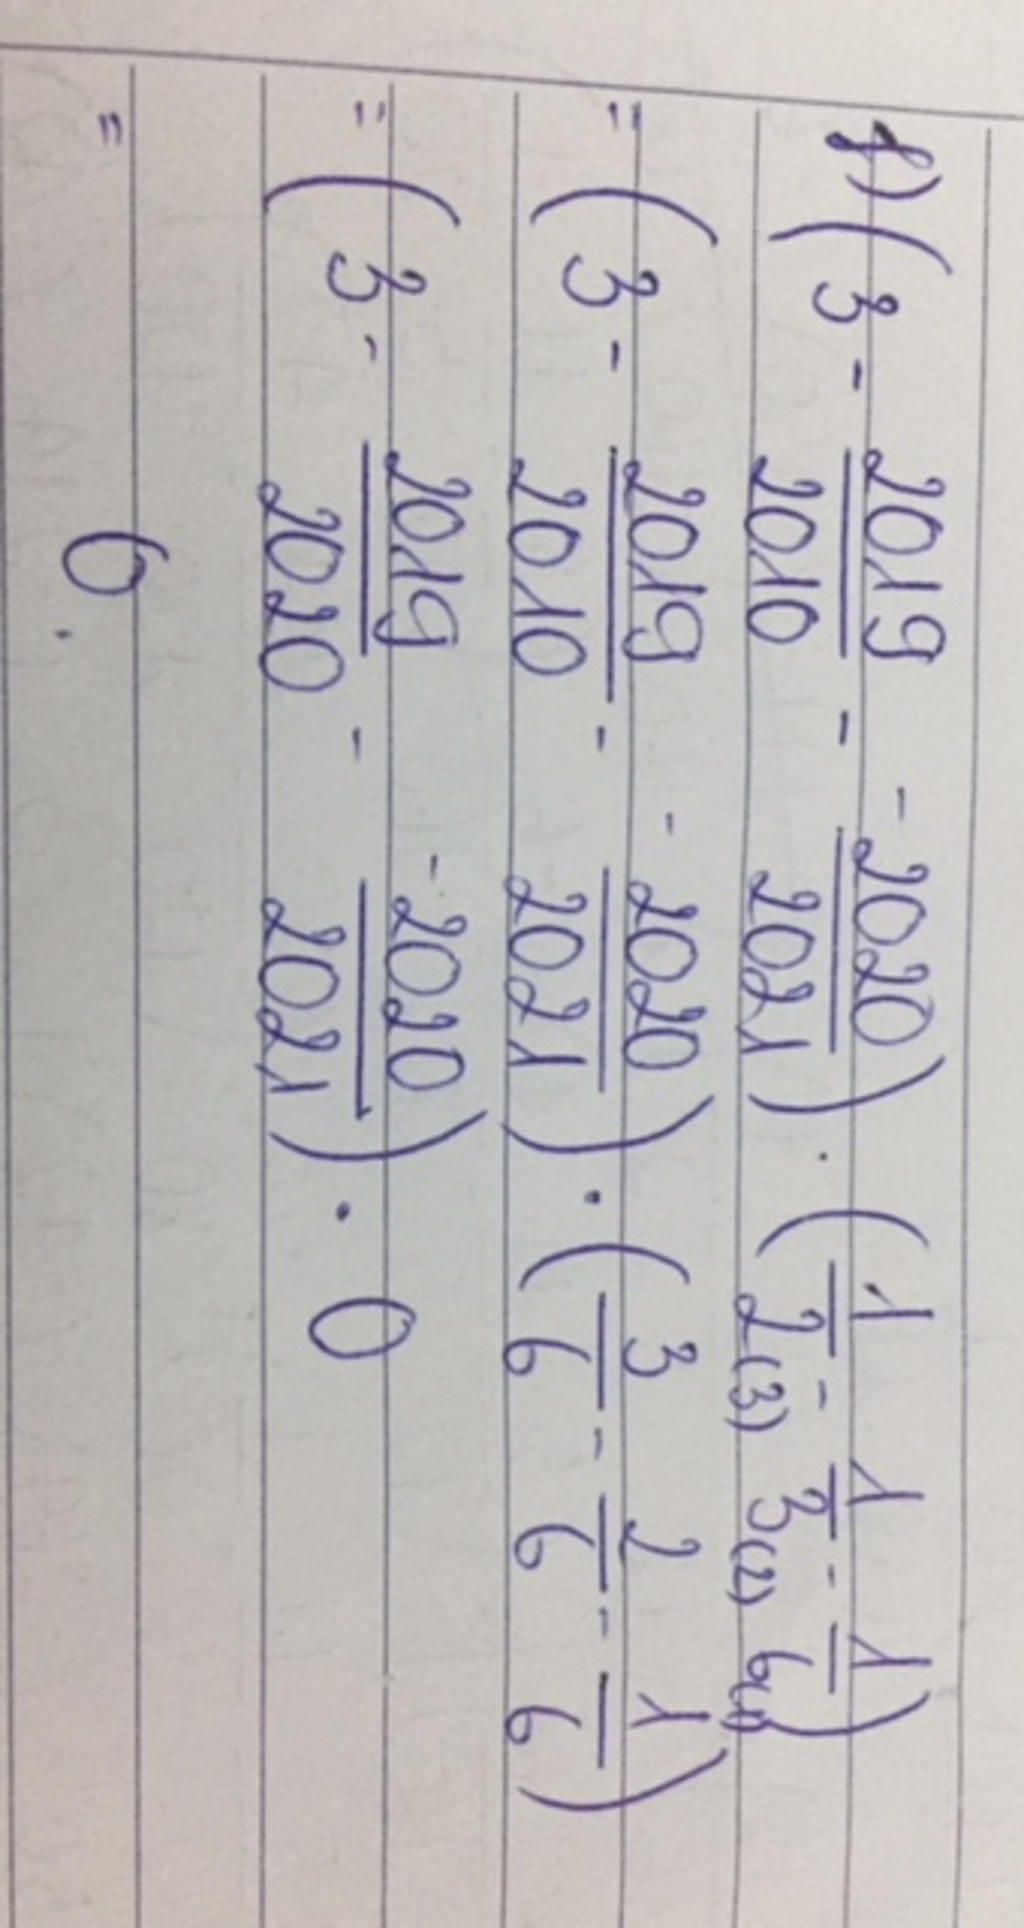 f) (3 - 2019/2010 - -2020/2021) . (1/2(3) - 1/3(2) - 1/6(1))
= (3 - 2019/2010 - -2020/2021) . (3/6 - 2/6 - 1/6)
= (3 - 2019/2020 - -2020/2021) . 0
= 0.